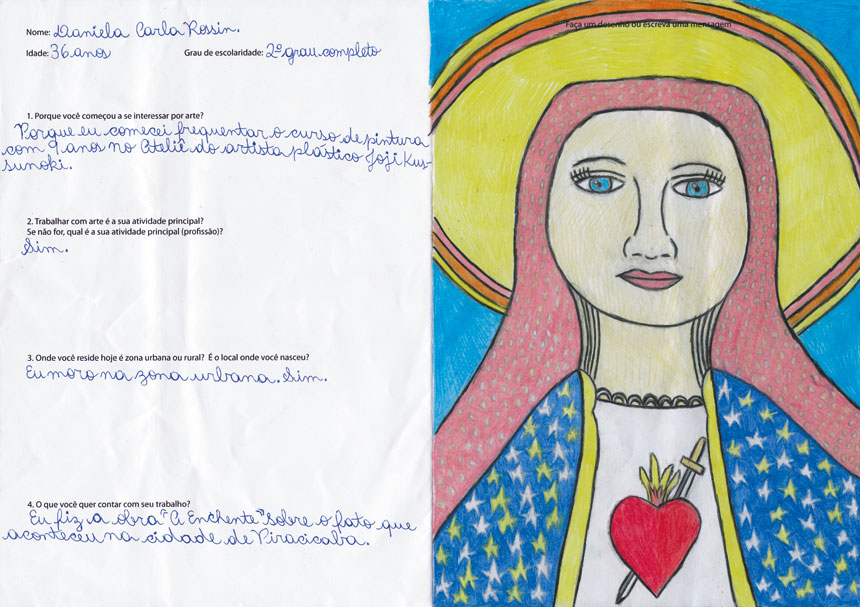 Nome: Daniela Carla Rossin.
Idade: 36 anos Grau de escolaridade: 2º grau completo
1. Porque você começou a se interessar por arte?
Porque eu comecei frequentar o curso de pintura
com 9 anos no Ateliê do artista plástico Joji Kus-
sunoki.
2. Trabalhar com arte é a sua atividade principal?
Se não for, qual é a sua atividade principal (profissão)?
Sim.
3. Onde você reside hoje é zona urbana ou rural? É o local onde você nasceu?
Eu moro na zona urbana. Sim.
4. O que você quer contar com seu trabalho?
Eu fiz a obra "A Enchente" sobre o fato que
aconteceu na cidade de Piracicaba.
Faça um desenho ou escreva uma mensagem